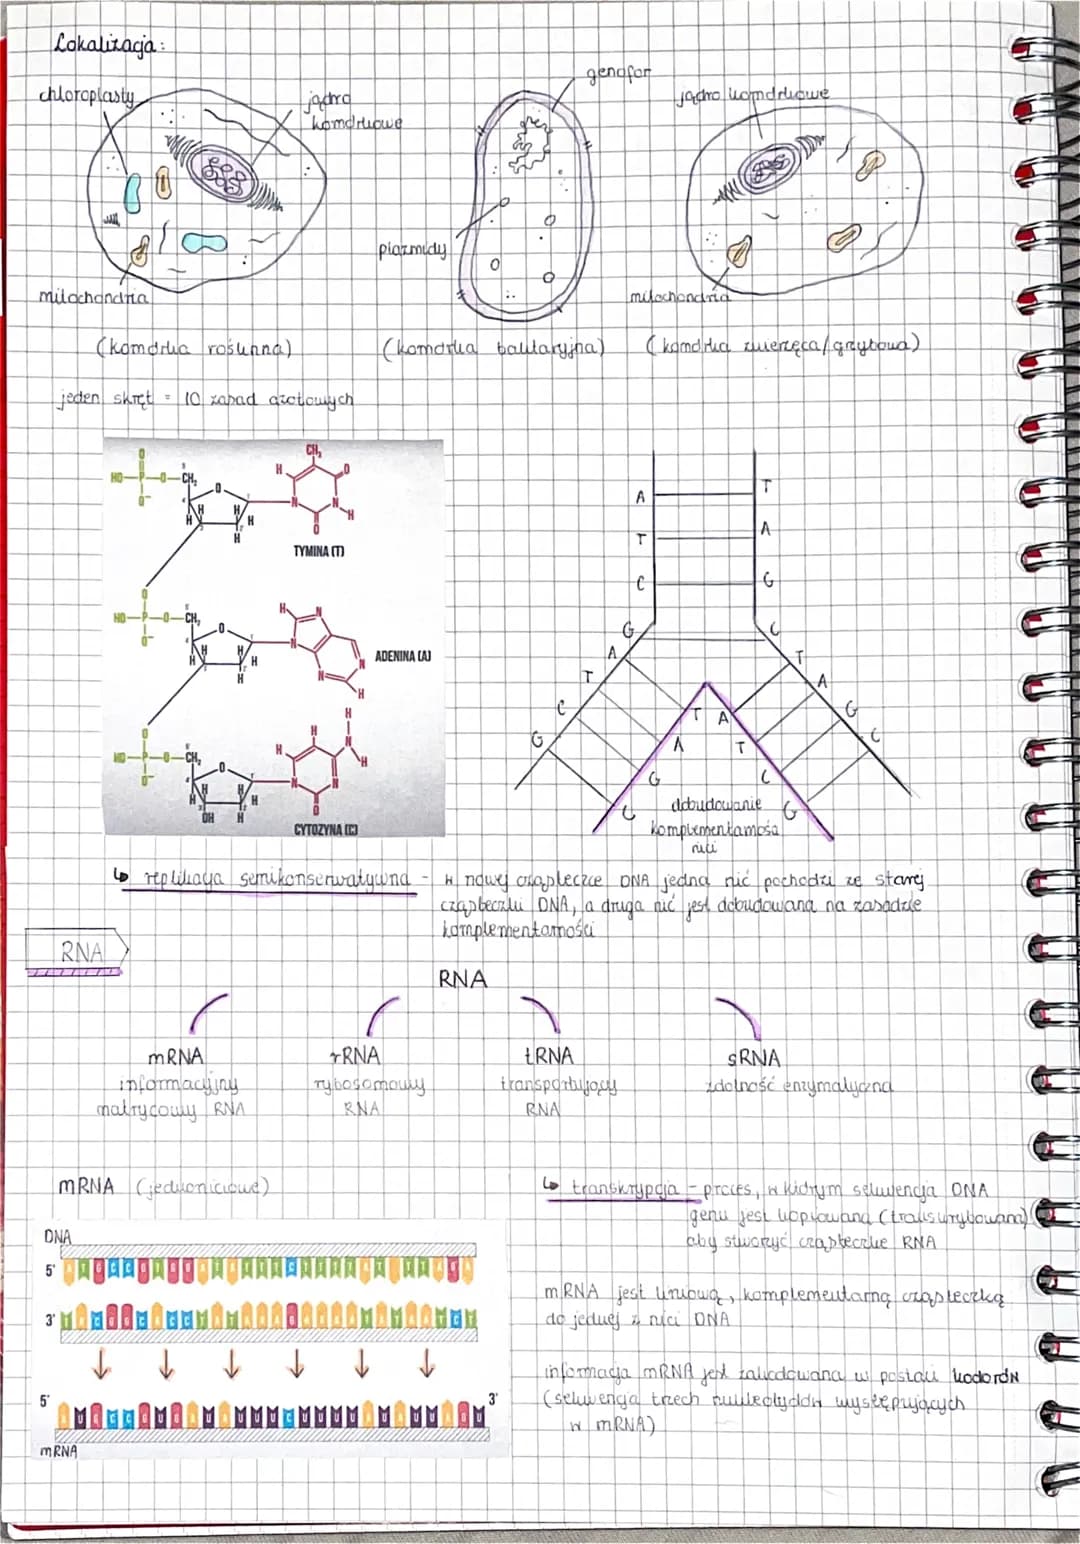 Lokalizacja:
chloroplasty
jądro
komórkowe
genofor
jądro komórkowe
plazmidy
mitochondria
mitochondria
(komórka roślinna)
(komórka bakteryjna)
(komórka zwierzęca/grzybowa)
jeden skręt = 10 zasad azotowych
TYMINA (T)
ADENINA (A)
CYTOZYNA (C)
A T
T A
C G
G C
A T
T A
C G
G C
T A
A T
G C
C G
dobudowanie
komplementarnośa
nici
↳ replikacja semikonserwatywna - w nowej cząsteczce DNA jedna nić pochodzi ze starej
cząsteczki DNA, a druga nić jest dobudowana na zasadzie
komplementarności
RNA
RNA
mRNA
informacyjny
matrycowy RNA
rRNA
rybosomowy
RNA
tRNA
transportujący
RNA
sRNA
zdolność enzymatyczna
mRNA (jednoniciowe)
↳ transkrypcja - proces, w którym sekwencja DNA
genu jest kopiowana (transkrybowana)
aby stworzyć cząsteczkę RNA
mRNA jest liniową, komplementarną cząsteczką
do jednej z nici DNA
informacja mRNA jest zakodowana w postaci kodonów
(sekwencja trzech nukleotydów występujących
w mRNA)
DNA
5'
3'
5' 3'
mRNA